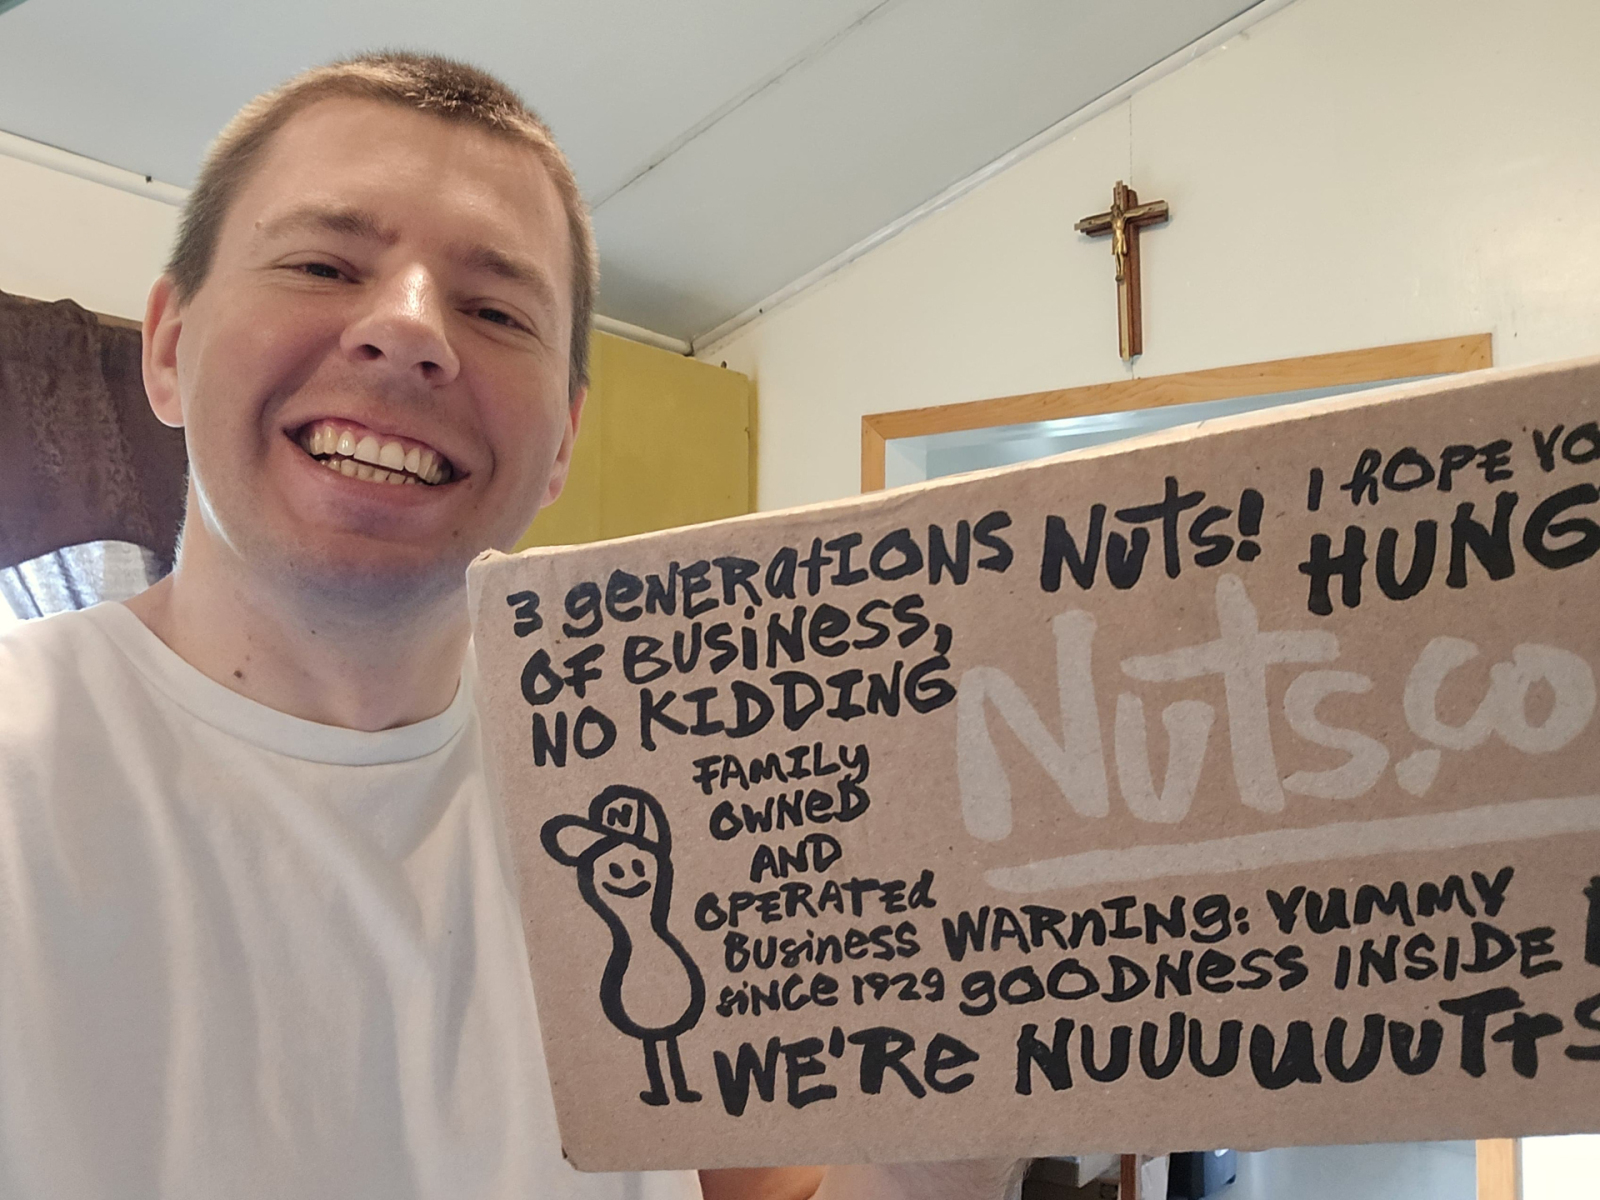 3 GENERATIONS
OF BUSINESS,
NO KIDDING
NUTS!
I HOPE YO
HUNG
Nuts.co
N
FAMILY
OWNED
AND
OPERATED
BUSINESS
SINCE 1929
WARNING: YUMMY
GOODNESS INSIDE
WE'RE NUUUUUUUTTS